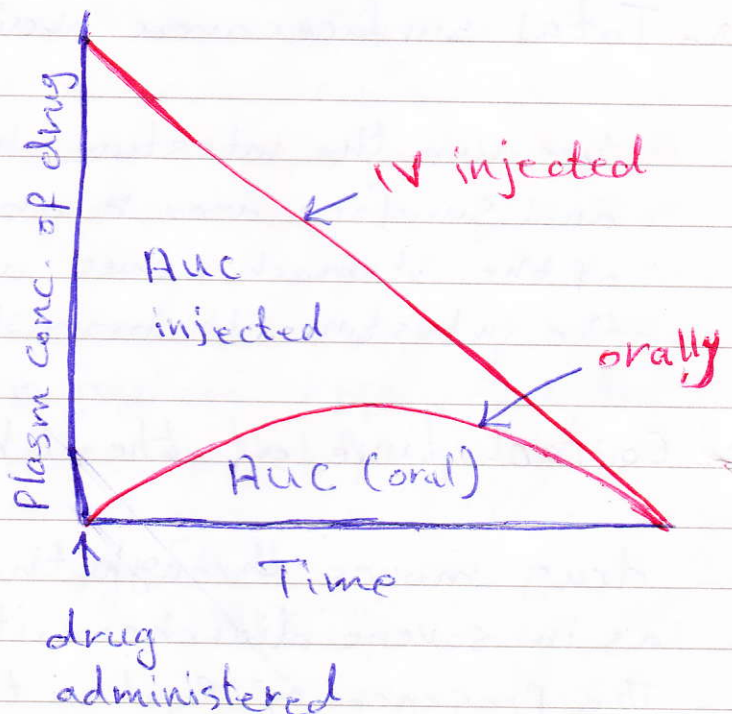 Plasm conc. of drug
IV injected
AUC
injected
orally
AUC (oral)
Time
drug
administered